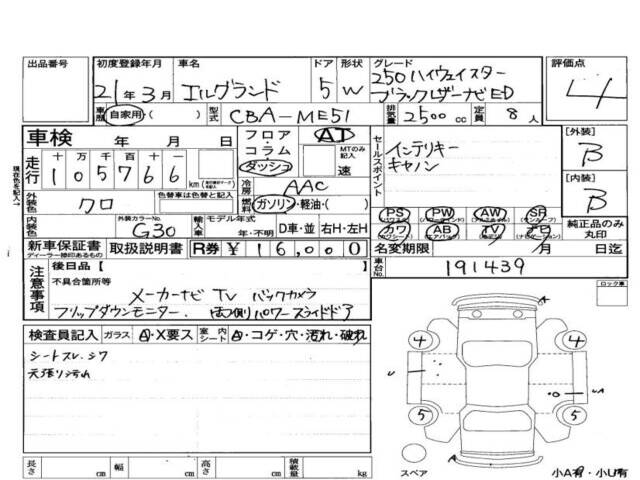 出品番号 初度登録年月 車名 ドア 形状 グレード 評価点
21年3月 エルグランド 5 W 250ハイウェイスター
ブラックレザーナビED 4
車歴 自家用・( ) 型式 CBA-ME51 排気量 2500 cc 定員 8人
車検 年 月 日 フロア・コラム・ダッシュ AT MTのみ記入 速 セールスポイント [外装]
走行 十 万 千 百 十 一 B
105766 km インテリキー
キャノン
冷房 AAC [内装]
外装色 クロ 色替車は色替と記入 燃料 ガソリン・軽油・( ) B
内装色 外装カラーNo. G30 輸入車 モデル年式 年・不明 D車・並 右H・左H
PS PW AW SR
カワ AB TV ナビ 純正品のみ丸印
新車保証書 ディーラー捺印あるもの 取扱説明書 R券 ¥16,000 名変期限 月 日迄
車台No. 191439
注意事項 後日品 [ ]
不具合箇所等
メーカーナビ TV バックカメラ
フリップダウンモニター. 両側パワースライドドア
ロック車
検査員記入 ガラス A・X要ス 室内シート A・コゲ・穴・汚れ・破れ
シートスレ.シワ
天張り汚れ
A
4 4
U
UA
5 5
スペア A
小A有・小U有
長さ cm 幅 cm 高さ cm 積載量 kg
現在色を記入